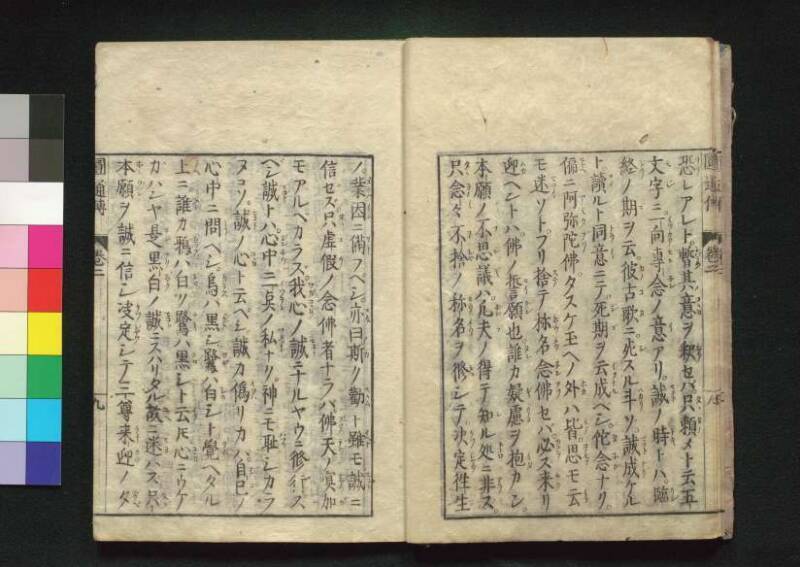 恐レアレト暫其意ヲ釈セバ只頼メト云五
文字ニ一向専念ノ意アリ誠ノ時トハ臨
終ノ期ヲ云彼古歌ニ死スル斗ソ誠成ケル
ト讀ルト同意ニテ死期ヲ云成ベシ佗念ナリ
偏ニ阿弥陀佛タスケ玉ヘノ外ハ皆思モ云
モ迷ソトフリ捨テ称名念佛セバ必ス来リ
迎ヘントハ佛ノ誓願也誰カ疑慮ヲ抱カン
本願ノ不思議ハ凡夫ノ得テ知ル処ニ非ス
只念々不捨ノ称名ヲ修シテ決定徃生
圓通傳
卷二
ノ業因ニ備フベシ亦曰斯ノ勸ト雖モ誠ニ
信セズ只虚假ノ念佛者ナラバ佛天ノ冥加
モアルベカラズ我心ノ誠ニナルヤウニ修行ス
ベシ誠トハ心中ニ一点ノ私ナリ神ニモ耻シカラ
ヌコソ誠ノ心ト云ベシ誠カ偽リカハ自己ノ
心中ニ問ヘシ烏ハ黒シ鷺ハ白シト覺ヘタル
上ニ誰カ鴉ハ白リ鷺ハ黒シト云𪜈心ニウケ
カハンヤ是黒白ノ誠ニスハリタル故ニ迷ハス只
本願ヲ誠ニ信シ決定シテ三尊来迎ノタ
圓通傳
卷二
九